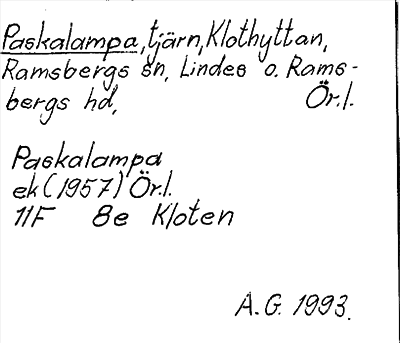 Paskalampa, tjärn, Klothyttan,
Ramsbergs sn, Lindes o. Rams-
bergs hd, Ör.l.
Paskalampa
ek (1957) Ör.l.
11F 8e Kloten
A.G. 1993.